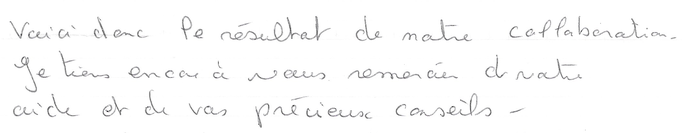 Voici donc le résultat de notre collaboration.
Je tiens encore à vous remercier d votre
aide et de vos précieux conseils -